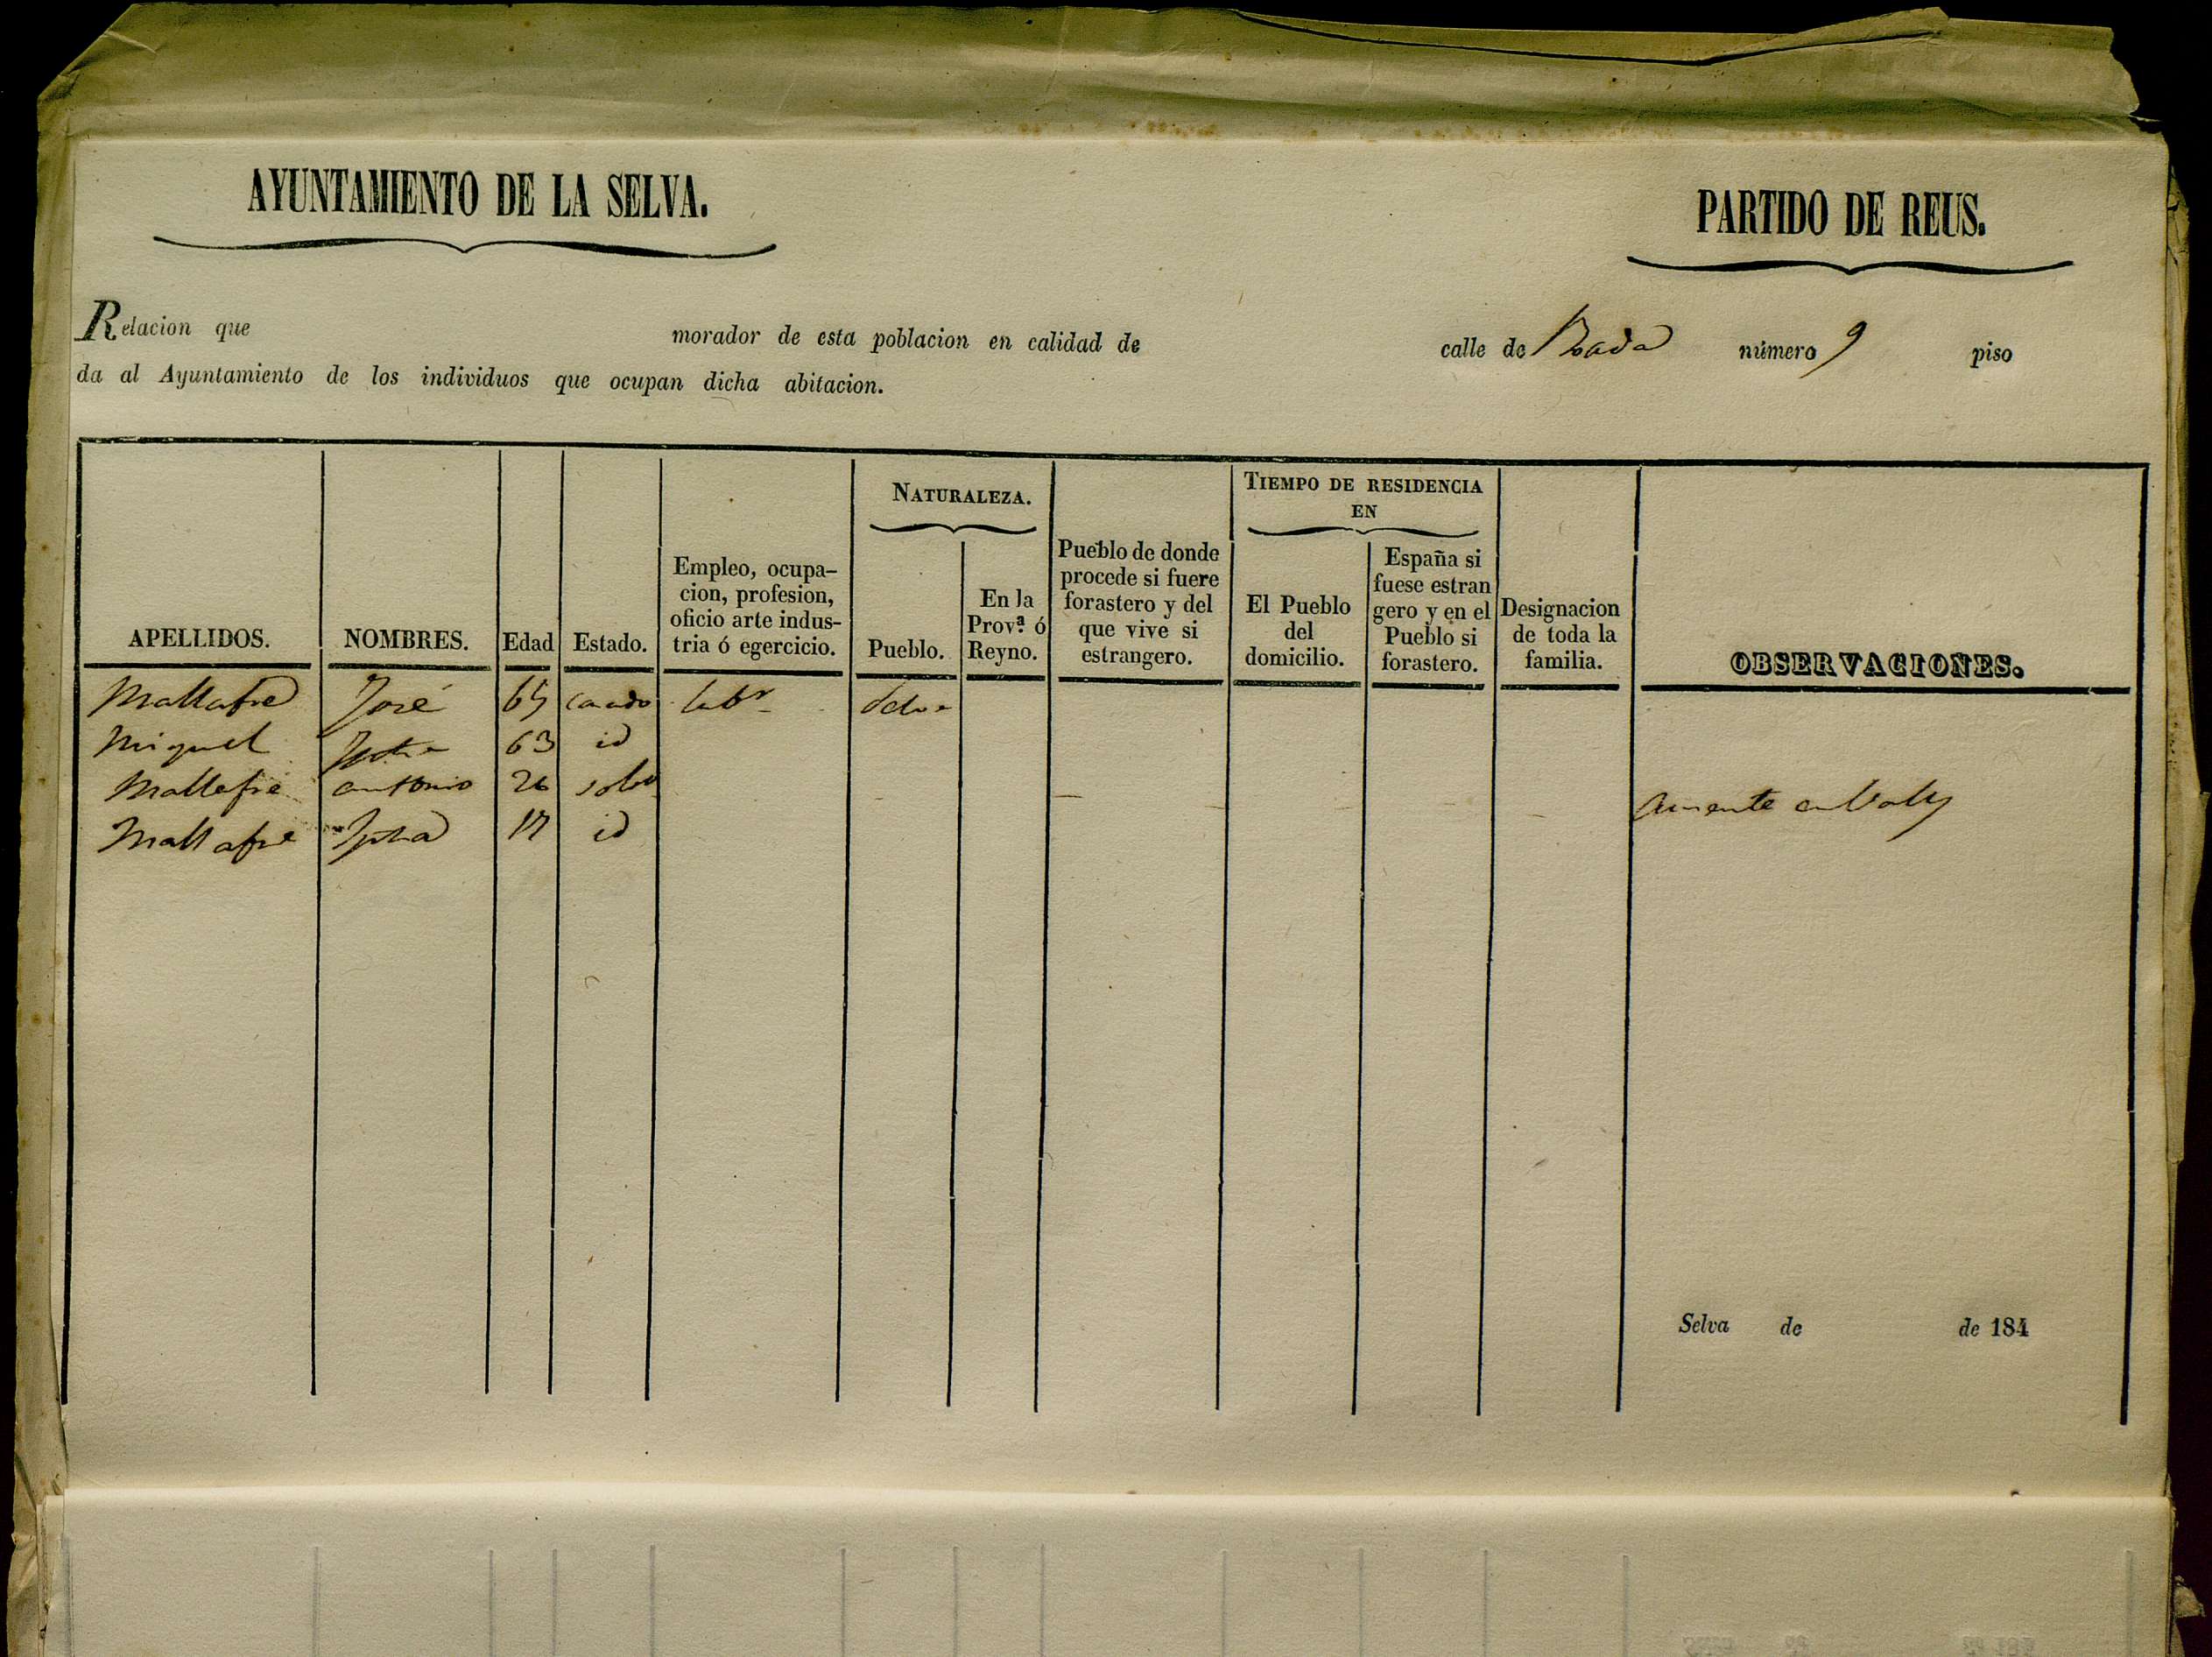 AYUNTAMIENTO DE LA SELVA.
PARTIDO DE REUS.
Relacion que morador de esta poblacion en calidad de calle de número 9 piso
da al Ayuntamiento de los individuos que ocupan dicha abitacion.
NATURALEZA.
TIEMPO DE RESIDENCIA
EN
APELLIDOS.
NOMBRES.
Edad
Estado.
Empleo, ocupa-
cion, profesion,
oficio arte indus-
tria ó egercicio.
Pueblo.
En la
Provª. ó
Reyno.
Pueblo de donde
procede si fuere
forastero y del
que vive si
estrangero.
El Pueblo
del
domicilio.
España si
fuese estran
gero y en el
Pueblo si
forastero.
Designacion
de toda la
familia.
OBSERVACIONES.
Mallafre José 65 casado labr Selva
Miguel 63 id
Mallafré antonio 26 solto Ausente en Valls
Mallafré id
Selva de de 184